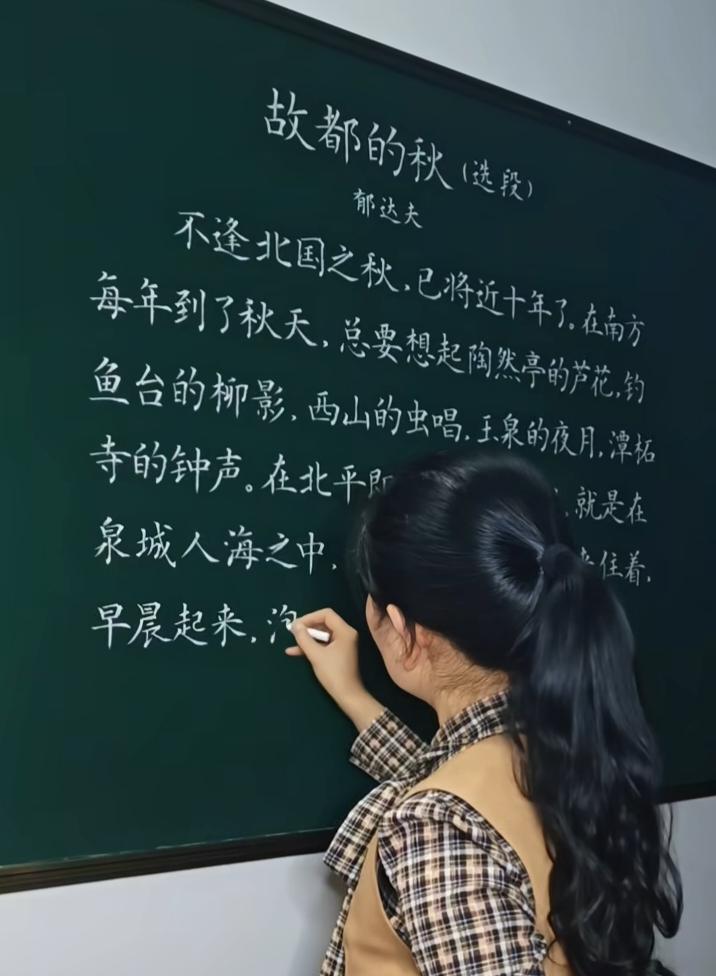 故都的秋(选段)
郁达夫
不逢北国之秋,已将近十年了。在南方
每年到了秋天,总要想起陶然亭的芦花,钓
鱼台的柳影,西山的虫唱,玉泉的夜月,潭柘
寺的钟声。在北平即 就是在
泉城人海之中, 住着,
早晨起来,泡